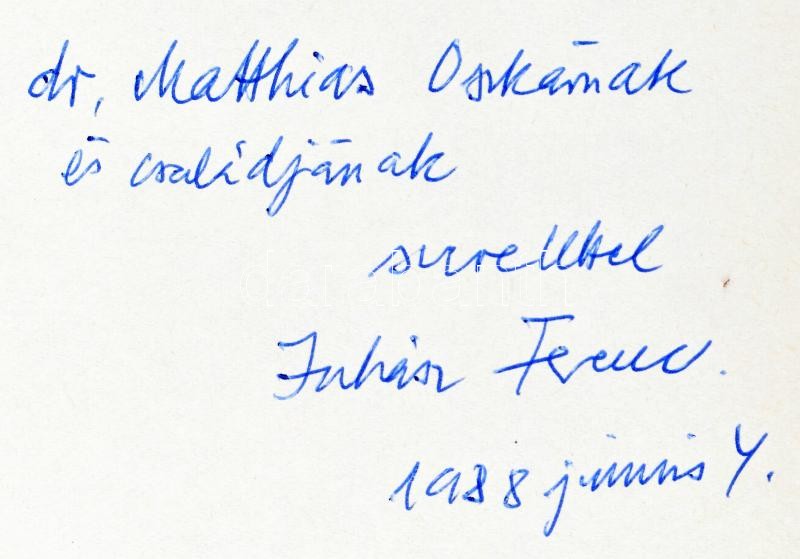 dr, Matthias Oszkárnak
és családjának
szeretettel
Juhász Ferenc.
1988 június 4.